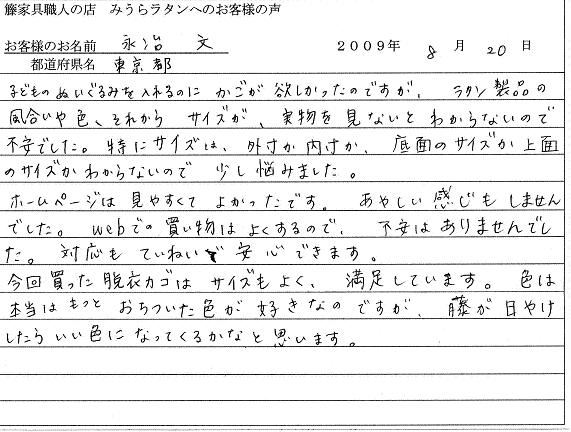 籐家具職人の店　みうらラタンへのお客様の声
お客様のお名前　永治　文　2009年　8月　20日
都道府県名　東京都
子どものぬいぐるみを入れるのに　かごが欲しかったのですが、ラタン製品の
風合いや色、それから　サイズが、実物を見ないとわからないので
不安でした。特にサイズは、外寸か内寸か、底面のサイズか上面
のサイズかわからないので　少し悩みました。
ホームページは見やすくてよかったです。あやしい感じもしません
でした。webでの買い物はよくするので、不安はありませんでし
た。対応もていねいで安心できます。
今回買った脱衣カゴはサイズもよく、満足しています。色は
本当はもっとおちついた色が好きなのですが、藤が日やけ
したらいい色になってくるかなと思います。